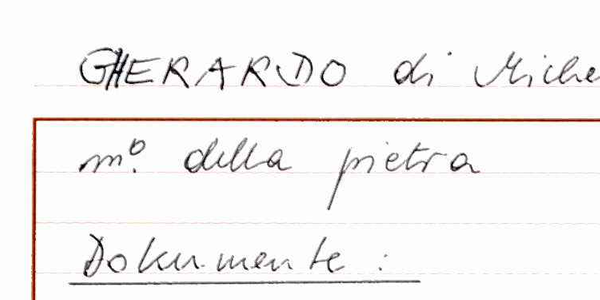 GHERARDO di Miche
m.º della pietra
Dokumente :